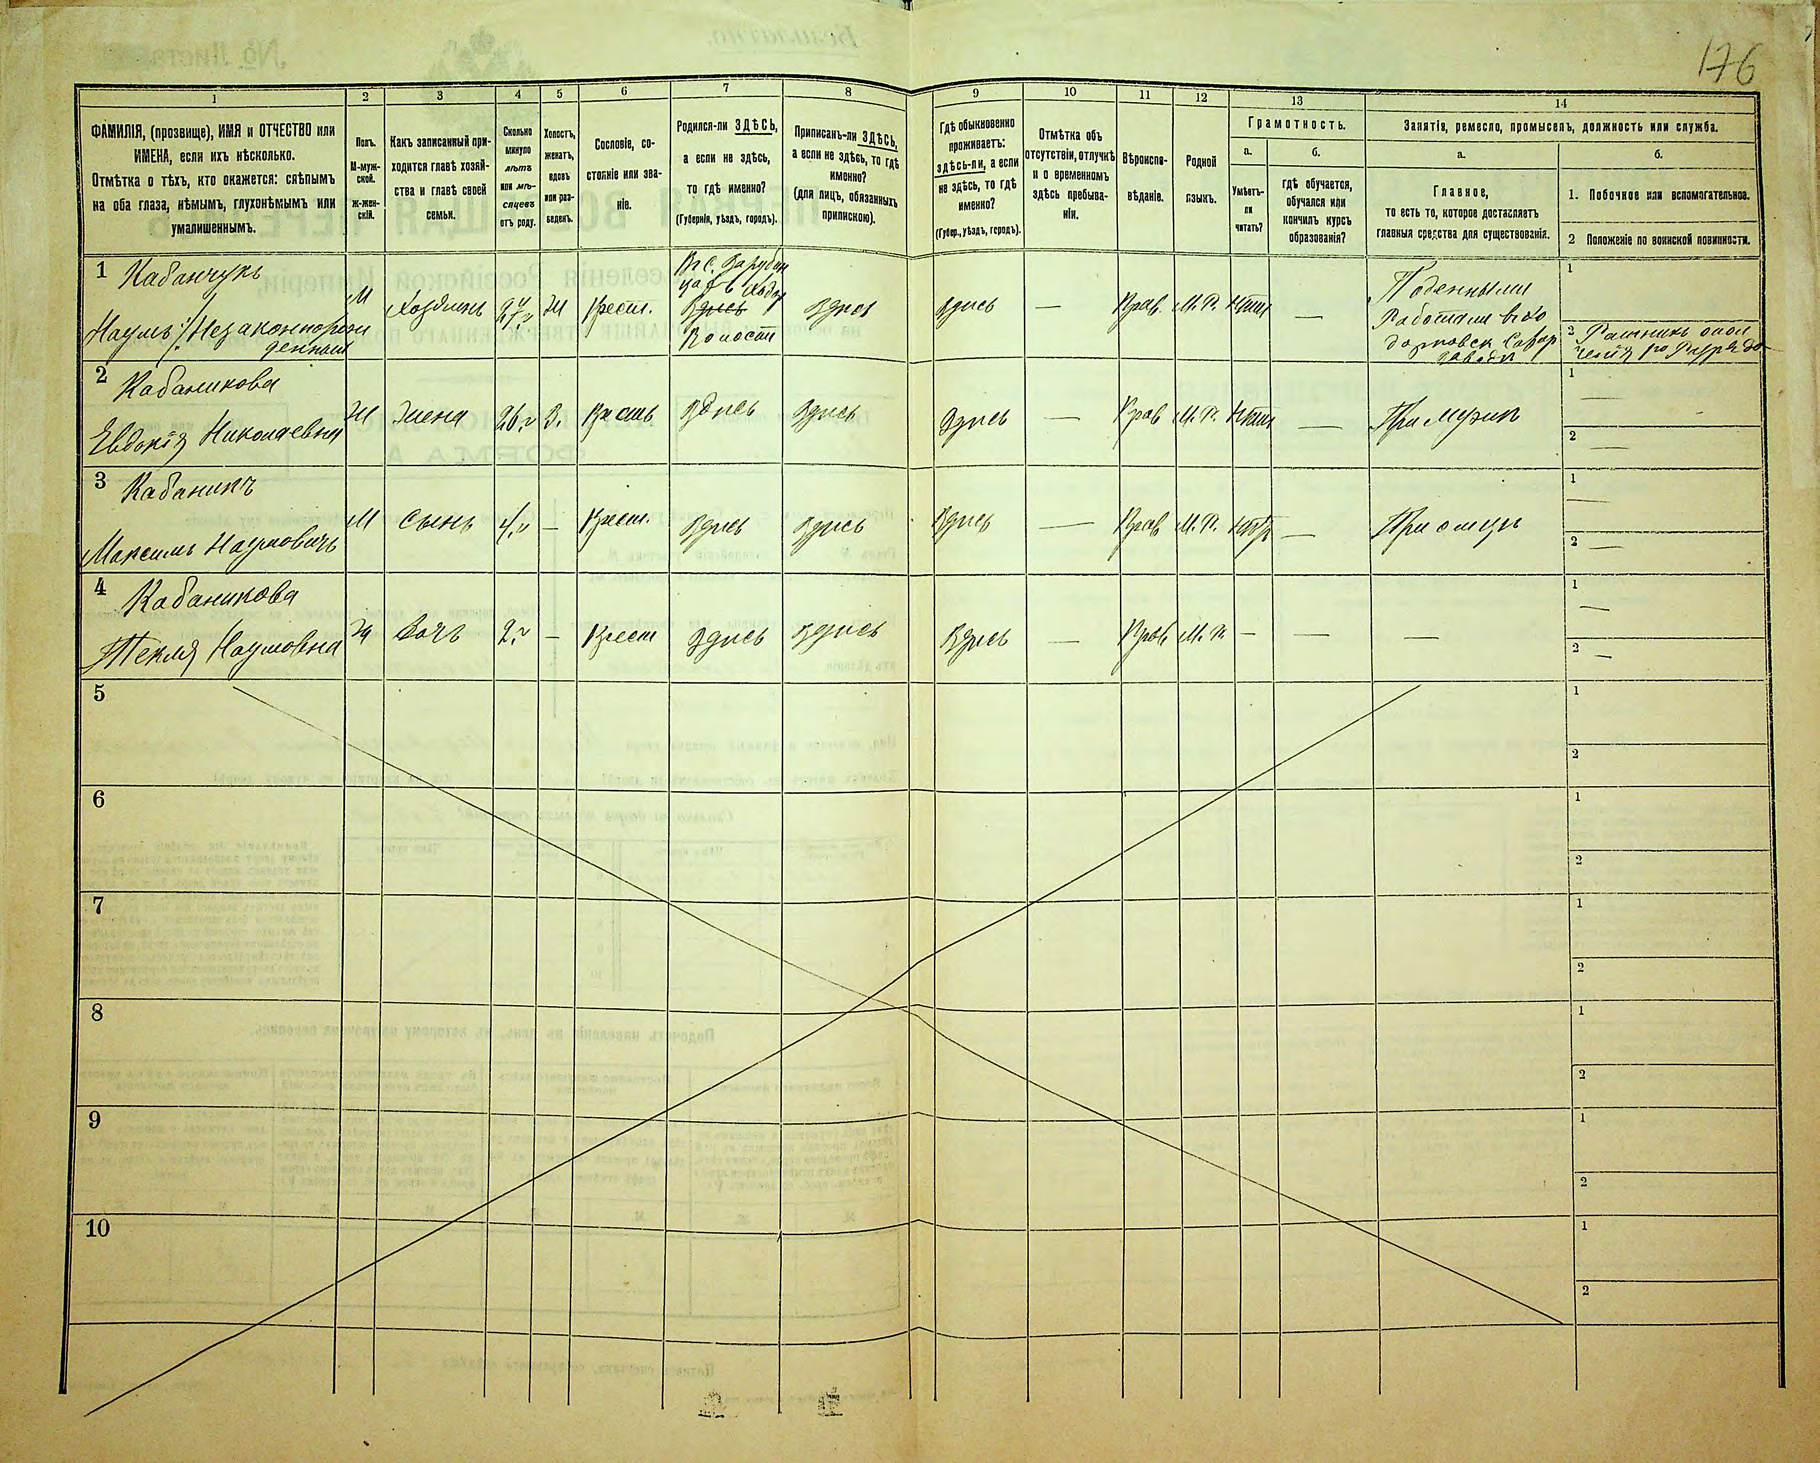 176
1 2 3 4 5 6 7 8 9 10 11 12 13 14
ФАМИЛІЯ, (прозвище), ИМЯ и ОТЧЕСТВО или
ИМЕНА, если ихъ нѣсколько.
Отмѣтка о тѣхъ, кто окажется: слѣпымъ
на оба глаза, нѣмымъ, глухонѣмымъ или
умалишеннымъ.
Полъ.
М-муж-
ской.
Ж-жен-
скій.
Какъ записанный при-
ходится главѣ хозяй-
ства и главѣ своей
семьи.
Сколько
минуло
лѣтъ
или мѣ-
сяцевъ
отъ роду.
Холостъ,
женатъ,
вдовъ
или раз-
веденъ.
Сословіе, со-
стояніе или зва-
ніе.
Родился-ли ЗДѢСЬ,
а если не здѣсь,
то гдѣ именно?
(Губернія, уѣздъ, городъ).
Приписанъ-ли ЗДѢСЬ,
а если не здѣсь, то гдѣ
именно?
(для лицъ, обязанныхъ
припискою).
Гдѣ обыкновенно
проживаетъ:
здѣсь-ли, а если
не здѣсь, то гдѣ
именно?
(Губер., уѣздъ, городъ).
Отмѣтка объ
отсутствіи, отлучкѣ
и о временномъ
здѣсь пребыва-
ніи.
Вѣроиспо-
вѣданіе.
Родной
языкъ.
Грамотность.
а.
Умѣетъ-
ли
читать?
б.
гдѣ обучается,
обучался или
кончилъ курсъ
образованія?
Занятія, ремесло, промыселъ, должность или служба.
а.
Главное,
то есть то, которое доставляетъ
главныя средства для существованія.
б.
1. Побочное или вспомогательное.
2 Положеніе по воинской повинности.
1 Кабанчукъ
Наумъ /Незаконнорож
денный
М
Хозяинъ
Ж
Крест.
Вс с. Зарубин
Здѣсь
Волости
Здѣсь
Здѣсь
—
Прав.
М. Р.
—
Поденными
Работами
1
2 Ратникъ опол
ченія
2 Кабаникова
Евдокія Николаевна
Ж
Жена
26
З.
Здѣсь
Здѣсь
Здѣсь
—
Прав
М. Р.
—
При мужѣ
1 —
2 —
3 Кабаникъ
Максимъ Наумовичъ
М
Сынъ
4
—
Крест.
Здѣсь
Здѣсь
Здѣсь
—
Прав
М. Р.
—
При отцѣ
1 —
2 —
4 Кабаникова
Текля Наумовна
Ж
Дочь
2
—
Крест
Здѣсь
Здѣсь
Здѣсь
—
Прав
М. Р.
—
—
—
1 —
2 —
5
1
2
6
1
2
7
1
2
8
1
2
9
1
2
10
1
2